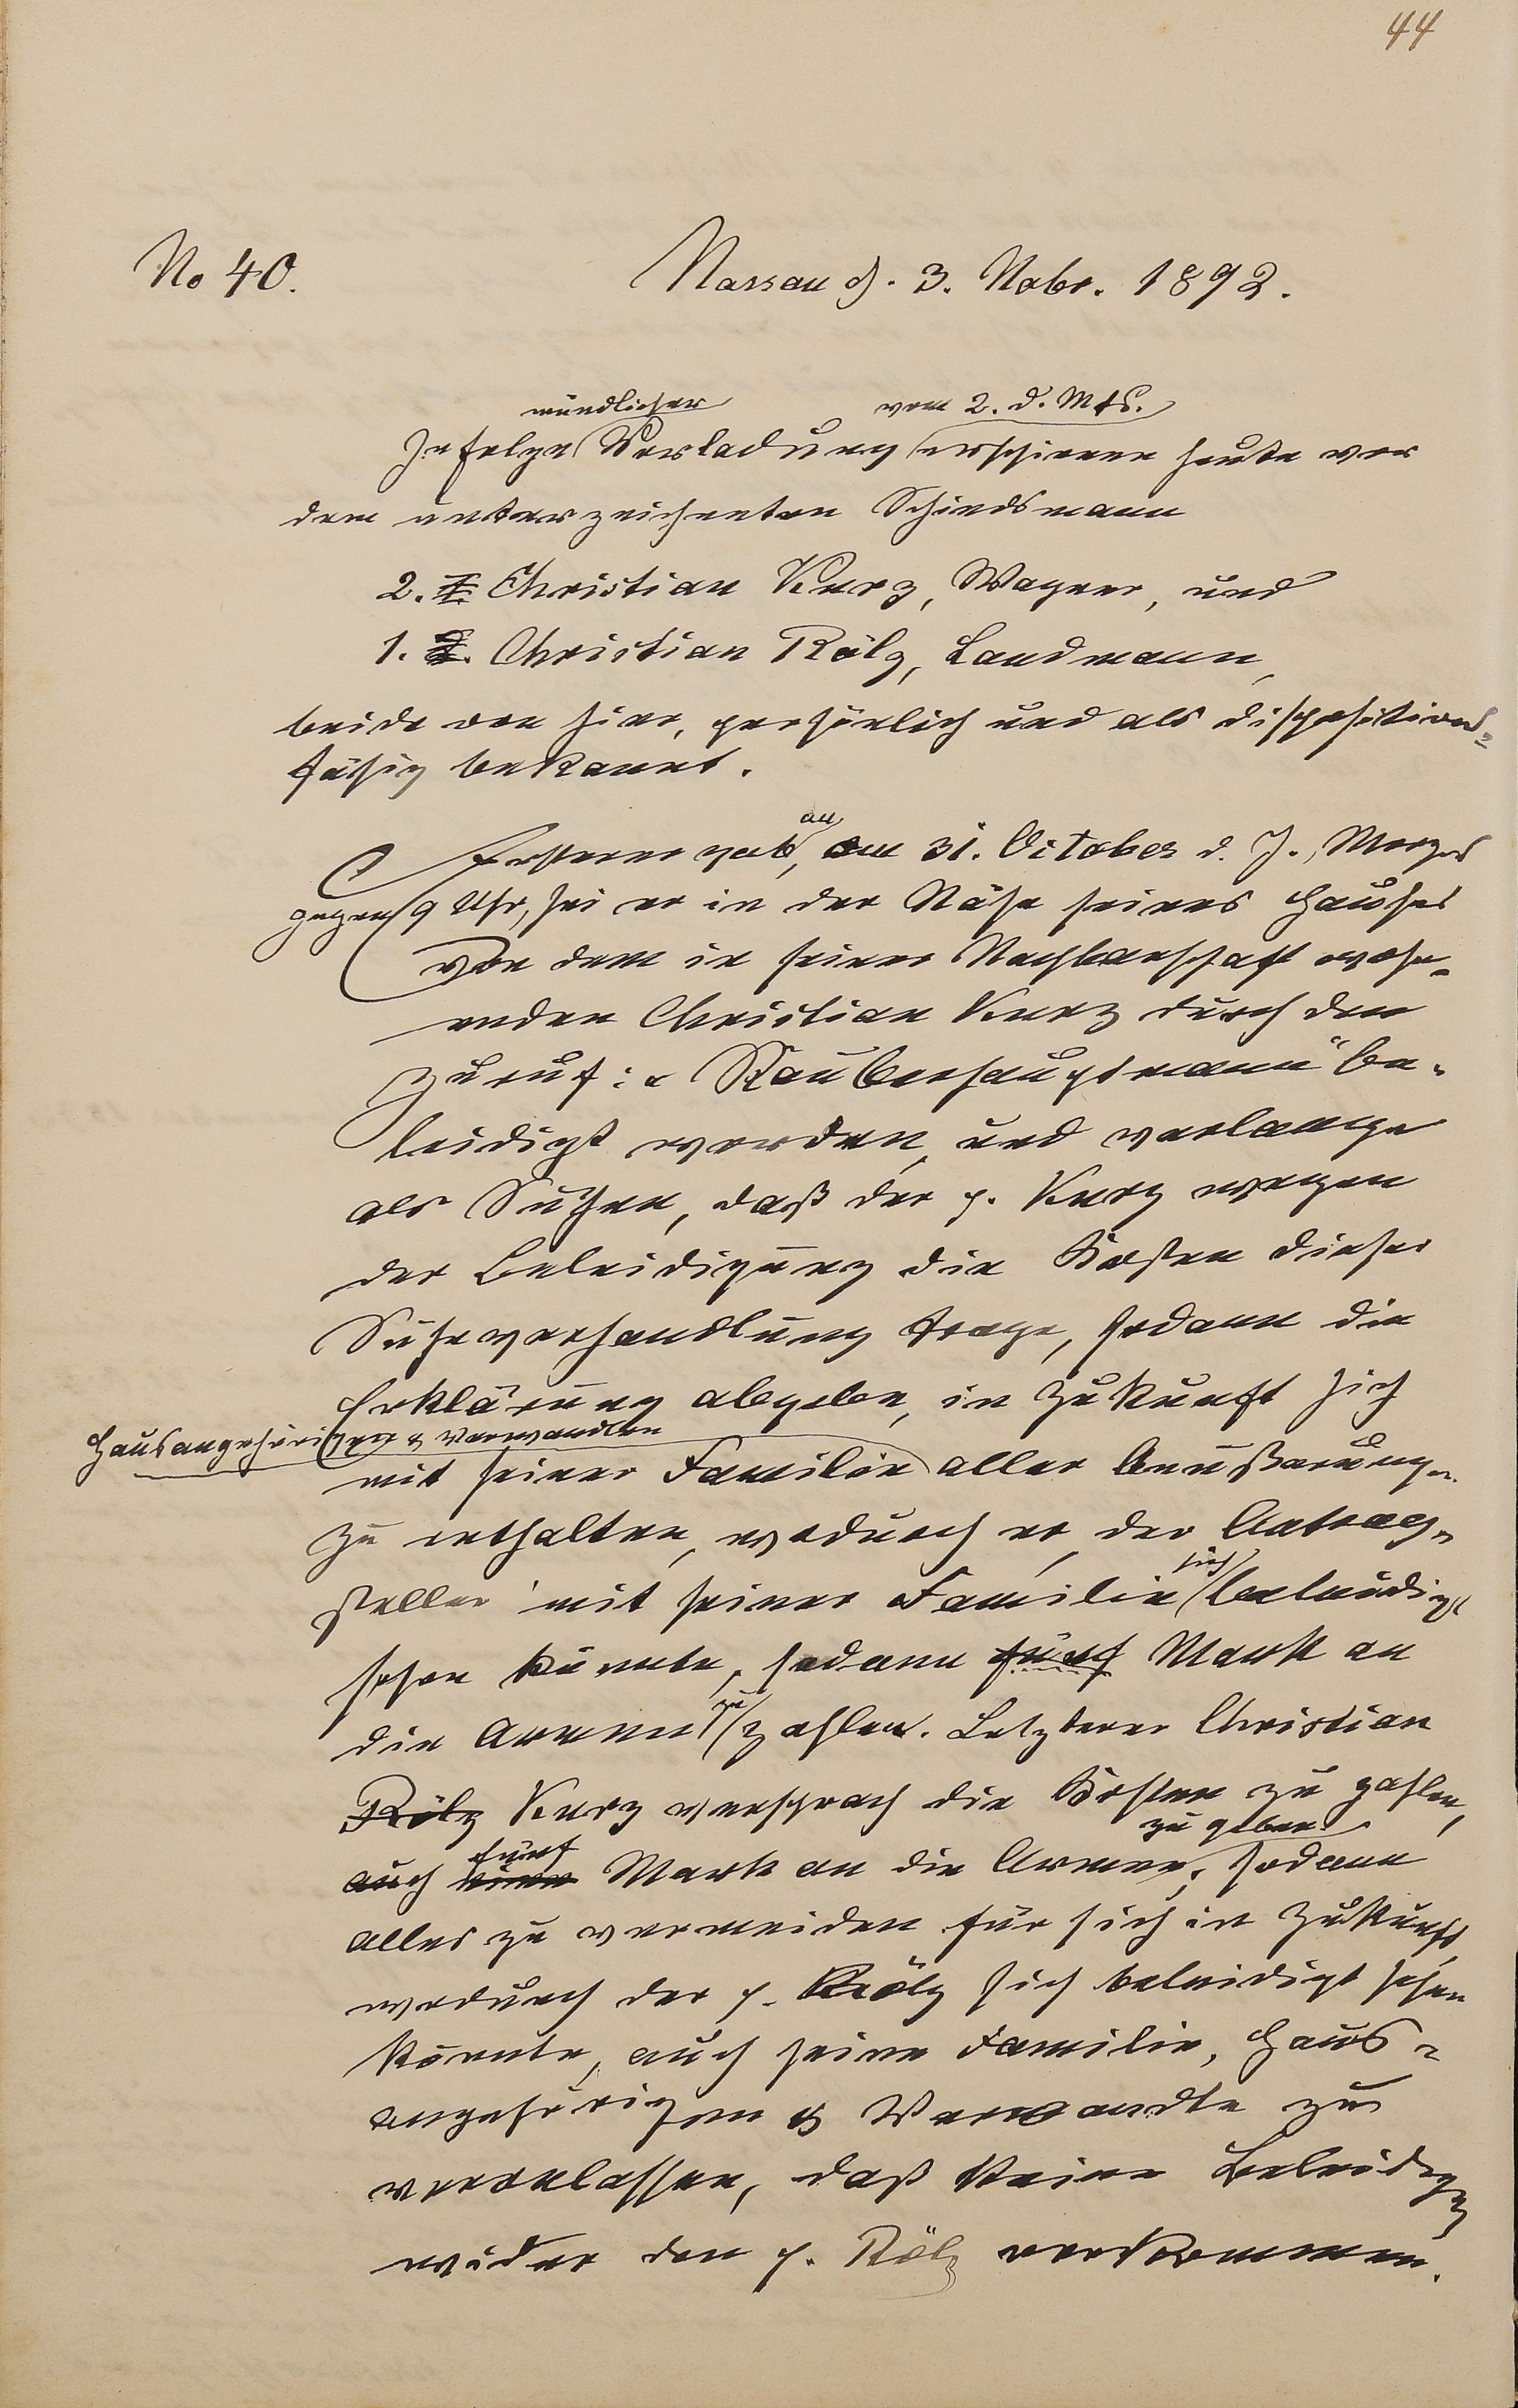 44
No 40. Nassau d. 3. Nobr. 1892.
mündlicher vom 2. d. Mts.
In folge Vorladung erschienen heute vor
dem unterzeichneten Schiedsmann
2. Christian Kurz, Wagner, und
1. Christian Rölz, Landmann,
beide von hier, persönlich und als dispositions-
fähig bekannt.
an
Ersterer gab, am 31. October d. J., Morgens
gegen 9 Uhr, sei er in der Nähe seines Hauses
von dem in seiner Nachbarschaft woh-
nenden Christian Kurz durch den
Zuruf: „Räuberhauptmann“ be-
leidigt worden, und verlange
als Sühne, daß der p. Kurz wegen
der Beleidigung die Kosten dieser
Sühneverhandlung trage, sodann die
Erklärung abgebe, in Zukunft sich
Hausangehörigen & Verwandten
mit seiner Familie aller Aeußerungen
zu enthalten, wodurch er, der Antrag-
sich
steller mit seiner Familie beleidigt
sehen könnte, sodann fünf Mark an
zu
die Armen zahlen. Letzterer Christian
Rölz Kurz versprach die Kosten zu zahlen,
fünf zu geben
auch einen Mark an die Armen, sodann
alles zu vermeiden für sich in Zukunft,
wodurch der p. Rölz sich beleidigt sehen
könnte, auch seine Familie, Haus-
angehörigen & Verwandte zu
veranlassen, daß keine Beleidigg
wider den p. Rölz vorkommen.